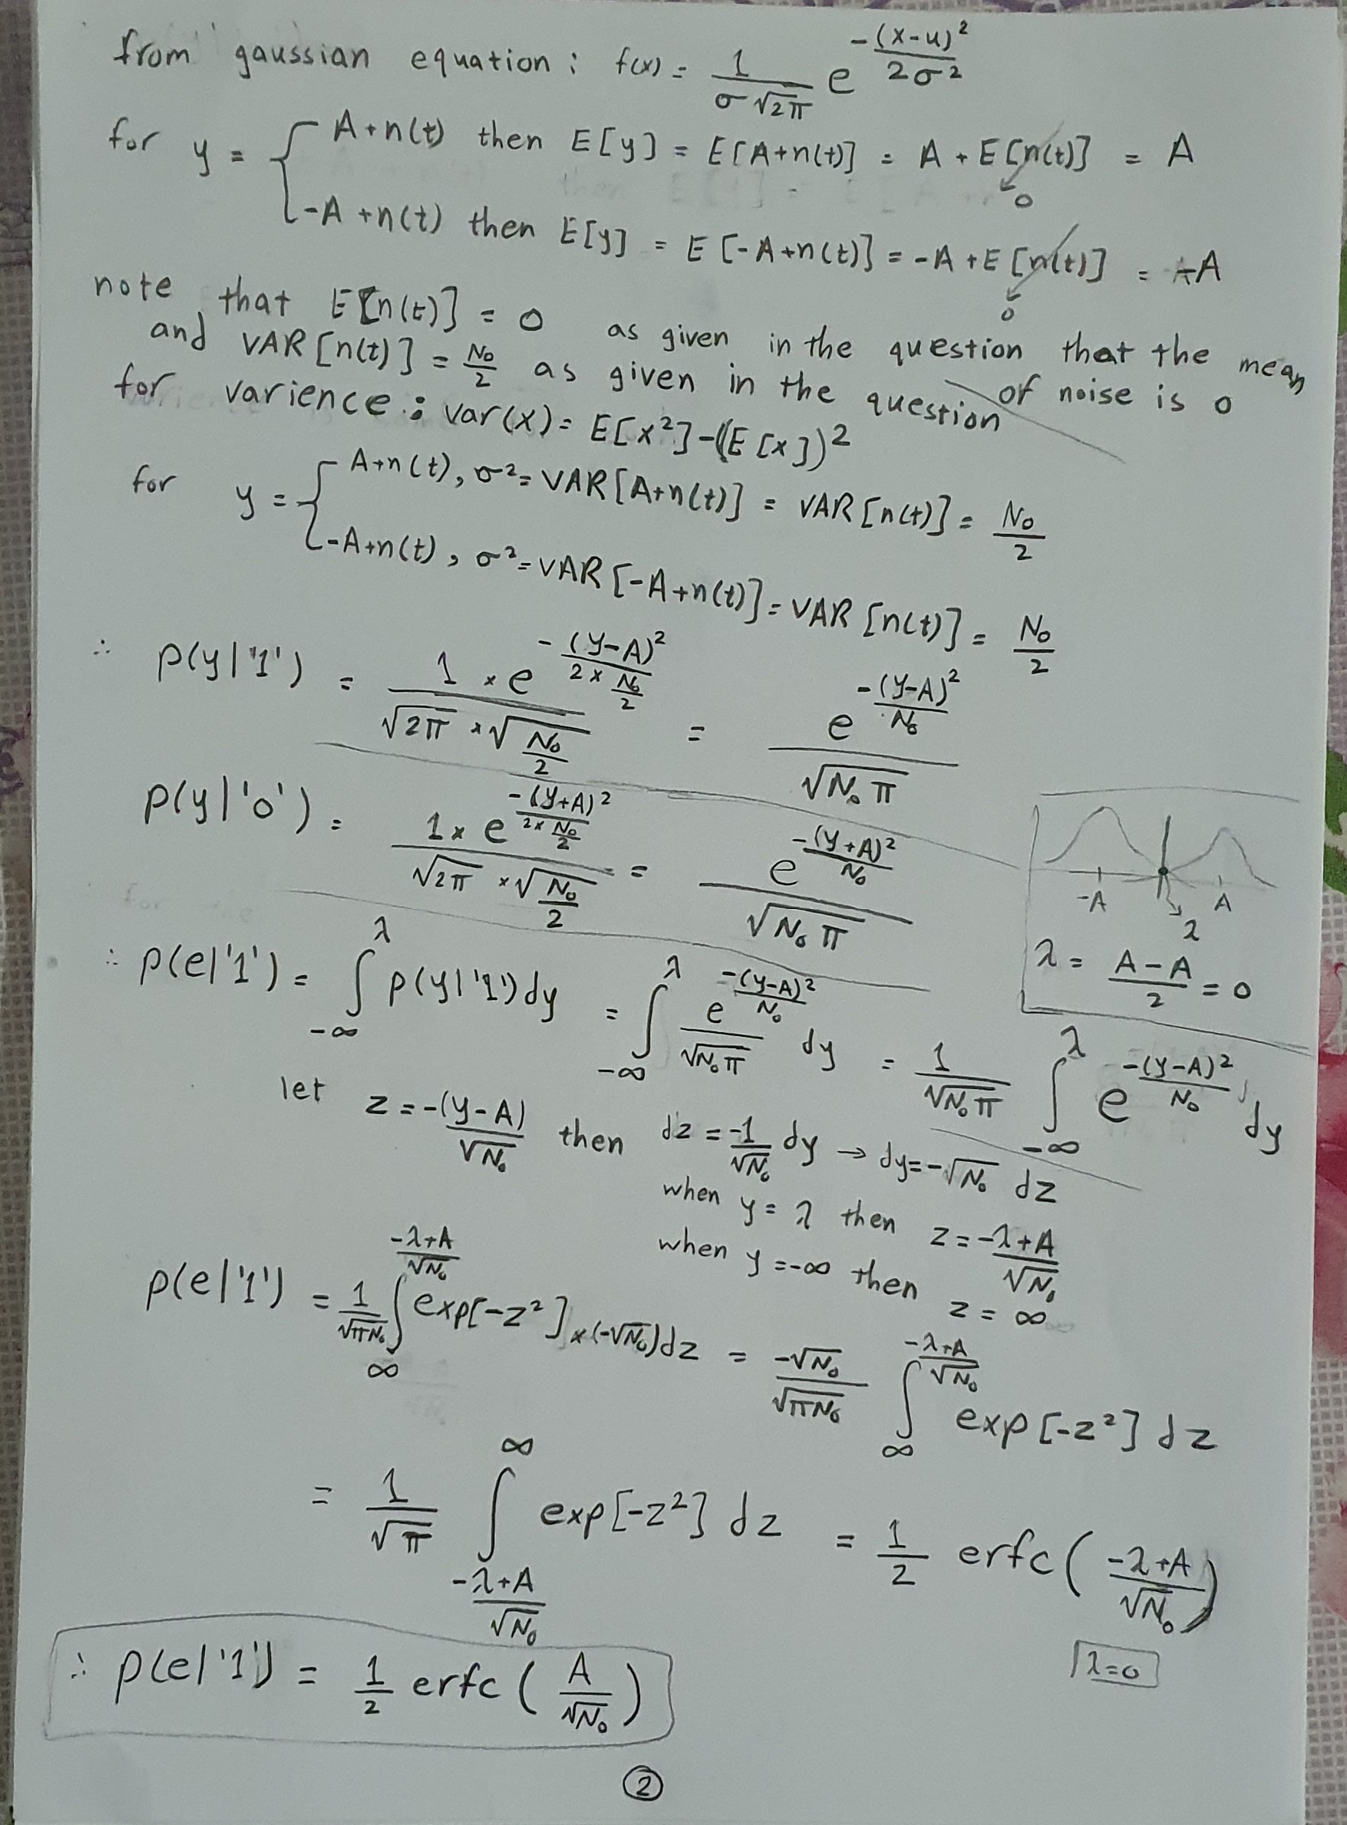 from gaussian equation : f(x) = 1/(σ√2π) e^(-(x-u)²/2σ²)
for y = { A+n(t) then E[y] = E[A+n(t)] = A + E[n(t)] = A
→ 0
-A+n(t) then E[y] = E[-A+n(t)] = -A + E[n(t)] = -A
→ 0
note that E[n(t)] = 0 as given in the question that the mean of noise is 0
and VAR[n(t)] = N₀/2 as given in the question
for varience : var(x) = E[x²]-(E[x])²
for y = { A+n(t), σ² = VAR[A+n(t)] = VAR[n(t)] = N₀/2
-A+n(t), σ² = VAR[-A+n(t)] = VAR[n(t)] = N₀/2
∴ p(y|'1') = (1 × e^(-(y-A)²/(2×N₀/2)))/(√2π × √(N₀/2)) = e^(-(y-A)²/N₀)/√(N₀π)
p(y|'0') = (1 × e^(-(y+A)²/(2×N₀/2)))/(√2π × √(N₀/2)) = e^(-(y+A)²/N₀)/√(N₀π)
-A A
λ
λ = (A-A)/2 = 0
∴ p(e|'1') = ∫_{-∞}^{λ} p(y|'1') dy = ∫_{-∞}^{λ} e^(-(y-A)²/N₀)/√(N₀π) dy = 1/√(N₀π) ∫_{-∞}^{λ} e^(-(y-A)²/N₀) dy
let z = -(y-A)/√N₀ then dz = -1/√N₀ dy → dy = -√N₀ dz
when y = λ then z = (-λ+A)/√N₀
when y = -∞ then z = ∞
p(e|'1') = 1/√(πN₀) ∫_{∞}^{(-λ+A)/√N₀} exp[-z²] × (-√N₀) dz = -√N₀/√(πN₀) ∫_{∞}^{(-λ+A)/√N₀} exp[-z²] dz
= 1/√π ∫_{(-λ+A)/√N₀}^{∞} exp[-z²] dz = 1/2 erfc((-λ+A)/√N₀)
λ=0
∴ p(e|'1') = 1/2 erfc(A/√N₀)
2